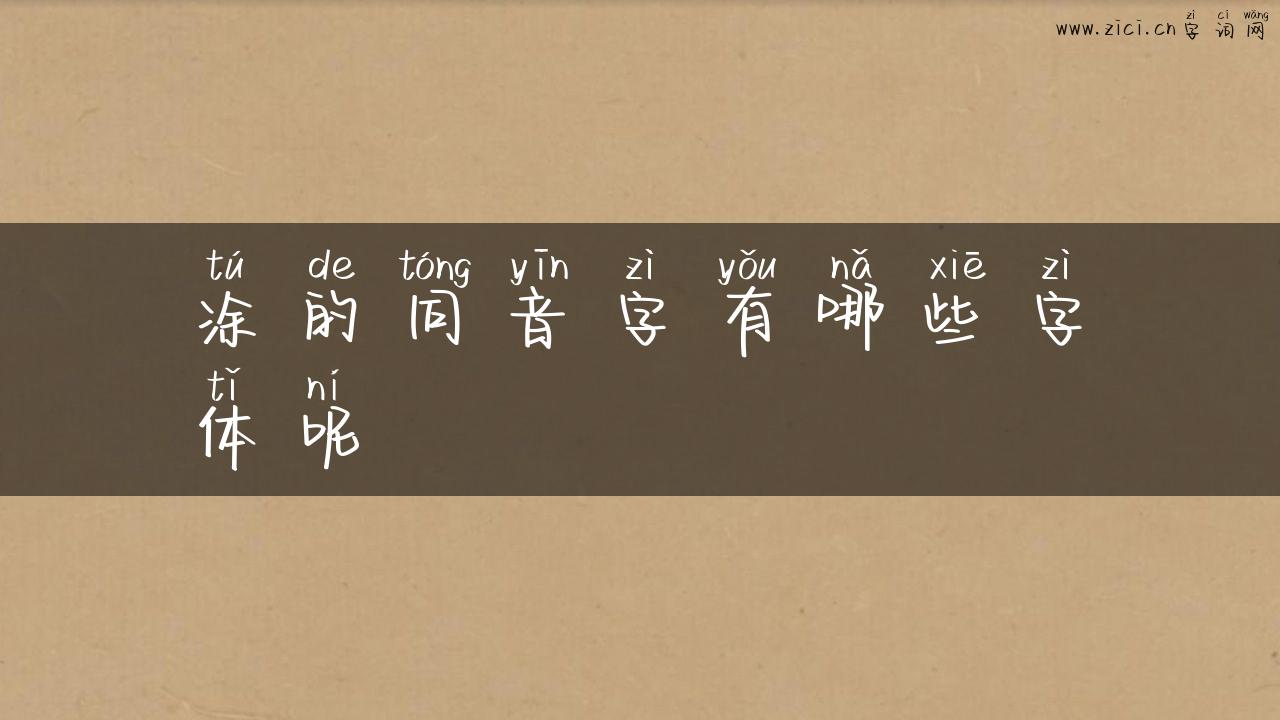 zì cí wǎng
www.zici.cn 字词网
tú de tóng yīn zì yǒu nǎ xiē zì
涂的同音字有哪些字
tǐ ní
体呢